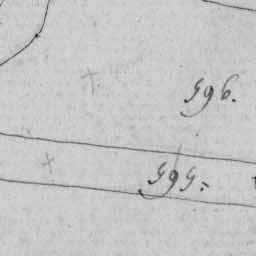 596.
595.